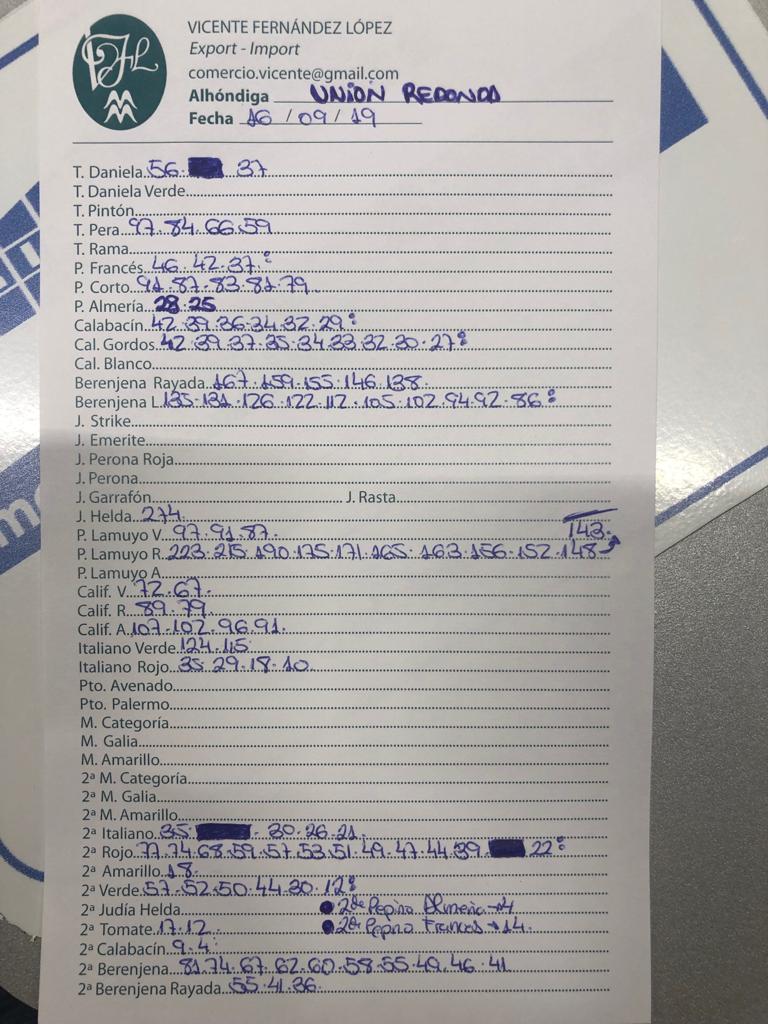 VICENTE FERNÁNDEZ LÓPEZ
Export - Import
comercio.vicente@gmail.com
Alhóndiga UNION REDONDA
Fecha 16/09/19
T. Daniela 56. 37
T. Daniela Verde
T. Pintón
T. Pera 97.84.66.59
T. Rama
P. Francés 46.42.37.
P. Corto 91.87.83.81.79
P. Almería 28.25
Calabacín 42.39.36.34.32.29:
Cal. Gordos 42.39.37.35.34.33.32.30.27:
Cal. Blanco
Berenjena Rayada 167.159.155.146.138.
Berenjena L 135.131.126.122.112.105.102.94.92.86:
J. Strike
J. Emerite
J. Perona Roja
J. Perona
J. Garrafón J. Rasta
J. Helda 274
P. Lamuyo V. 97.91.87. 143.
P. Lamuyo R. 223.215.190.175.171.165.163.156.152.148
P. Lamuyo A
Calif. V. 72.67.
Calif. R. 89.79.
Calif. A. 107.102.96.91.
Italiano Verde 124.115
Italiano Rojo 35.29.18.10
Pto. Avenado
Pto. Palermo
M. Categoría
M. Galia
M. Amarillo
2ª M. Categoría
2ª M. Galia
2ª M. Amarillo
2ª Italiano 35. 30.26.21.
2ª Rojo 77.74.68.59.57.53.51.49.47.44.39. 22:
2ª Amarillo 18.
2ª Verde 57.52.50.44.30.12:
2ª Judía Helda 2de Pepino Almeria→4
2ª Tomate 17.12. 2de Pepino Frances→14.
2ª Calabacín 9.4.
2ª Berenjena 81.74.67.62.60.58.55.49.46.41
2ª Berenjena Rayada 55.41.36.